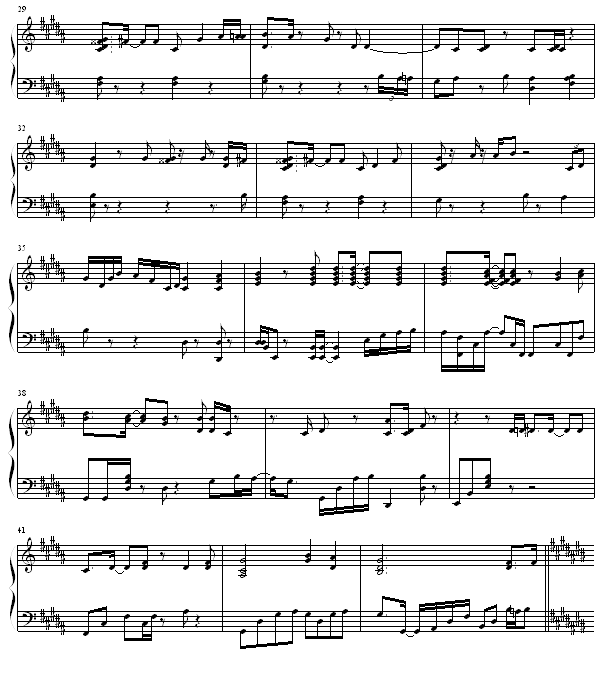 29
3
32
3
35
38
41